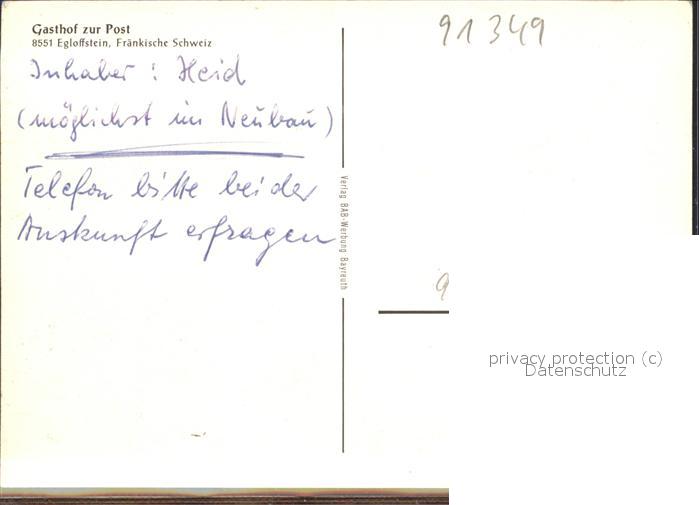 Gasthof zur Post
8551 Egloffstein, Fränkische Schweiz
Inhaber: Heid
(möglichst im Neubau)
Telefon bitte bei der
Auskunft erfragen
Verlag BAB-Werbung Bayreuth
91349
9
privacy protection (c)
Datenschutz